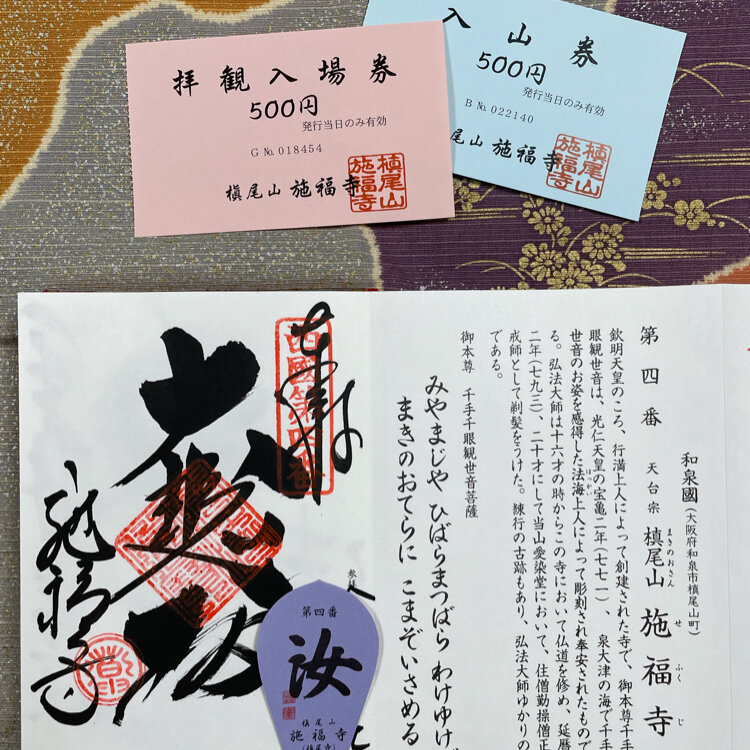 拝観入場券
500円
発行当日のみ有効
G №018454
槇尾山 施福寺
槇尾山
施福寺
入山券
500円
発行当日のみ有効
B №022140
尾山 施福寺
槇尾山
施福寺
第四番 天台宗 槇尾山 施福寺
まきのおさん せふくじ
和泉國(大阪府和泉市槇尾山町)
欽明天皇のころ、行満上人によって創建された寺で、御本尊千手
眼観世音は、光仁天皇の宝亀二年(七七一)、泉大津の海で千手
世音のお姿を感得した法海上人によって彫刻され奉安されたもので
る。弘法大師は十六才の時からこの寺において仏道を修め、延暦
二年(七九三)、二十才にして当山愛染堂において、住僧勤操僧正
戒師として剃髪をうけた。練行の古跡もあり、弘法大師ゆかりの
である。
御本尊 千手千眼観世音菩薩
みやまじや ひばらまつばら わけゆけ
まきのおてらに こまぞいさめる
奉拝
西國第四番
大悲
施福寺
第四番
汝
槇尾山
施福寺
(槇尾寺)